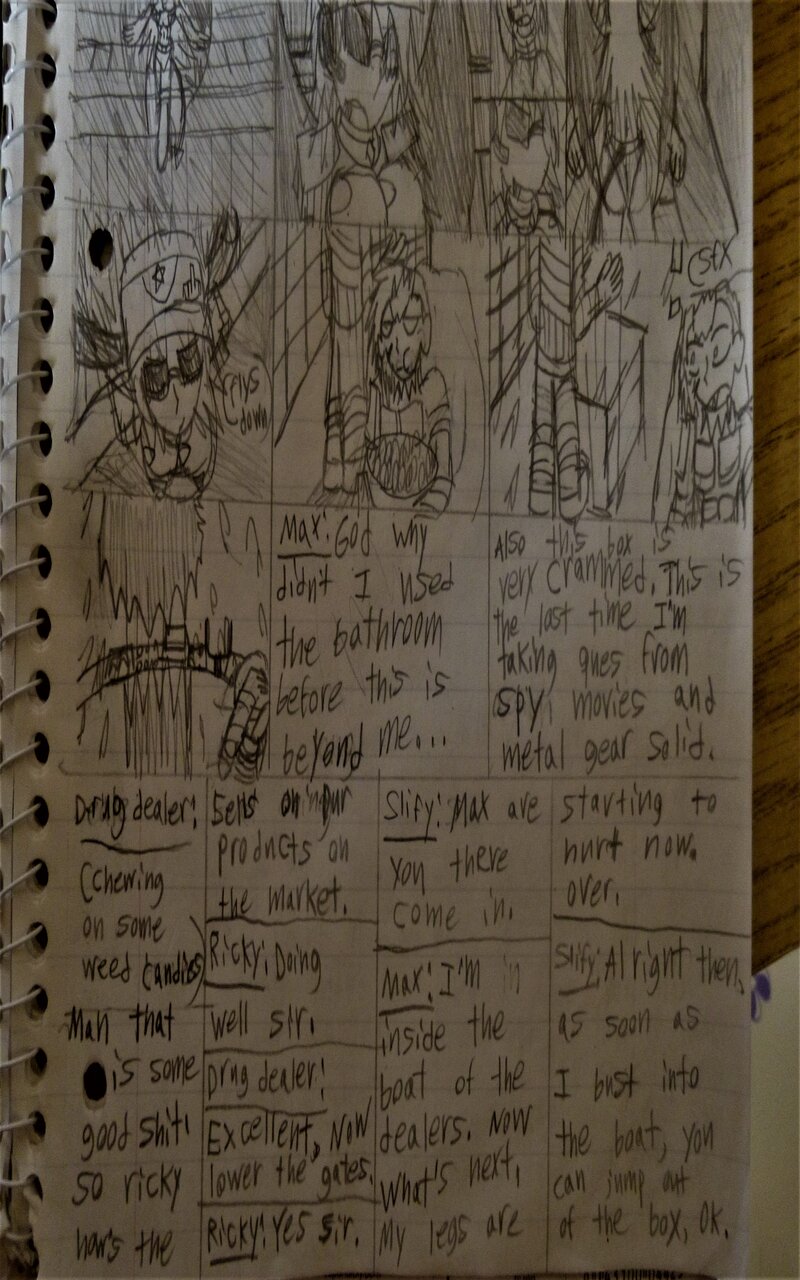 (Lays
down)
Max: God why
didn't I used
the bathroom
before this is
beyond me...
Also this box is
very crammed. This is
the last time I'm
taking ques from
spy movies and
metal gear solid.
Drug dealer:
(chewing
on some
weed candies)
Man that
is some
good shit!
So ricky
how's the
Sells on our
products on
the market.
Ricky: Doing
well sir.
Drug dealer:
Excellent, Now
lower the gates.
Ricky: Yes sir.
Slify: Max are
you there
come in.
Max: I'm in
inside the
boat of the
dealers. Now
what's next,
My legs are
starting to
hurt now.
over.
Slify: Alright then.
as soon as
I bust into
the boat, you
can jump out
of the box, OK.